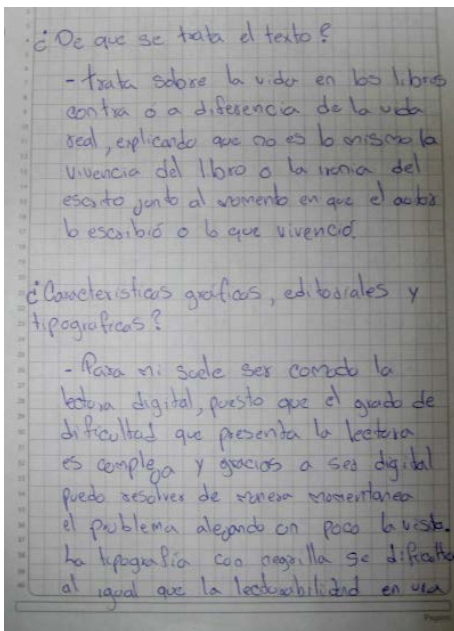 ¿De que se trata el texto?
- trata sobre la vida en los libros
contra o a diferencia de la vida
real, explicando que no es lo mismo la
vivencia del libro o la ironia del
escrito junto al momento en que el autor
lo escribió o lo que vivenció.
¿Caracteristicas graficas, editoriales y
tipograficas?
- Para mi suele ser comodo la
lectura digital, puesto que el grado de
dificultad que presenta la lectura
es compleja y gracias a ser digital
puedo resolver de manera momentanea
el problema alejando un poco la vista.
La tipografia con negrilla se dificulta
al igual que la lecturabilidad en una